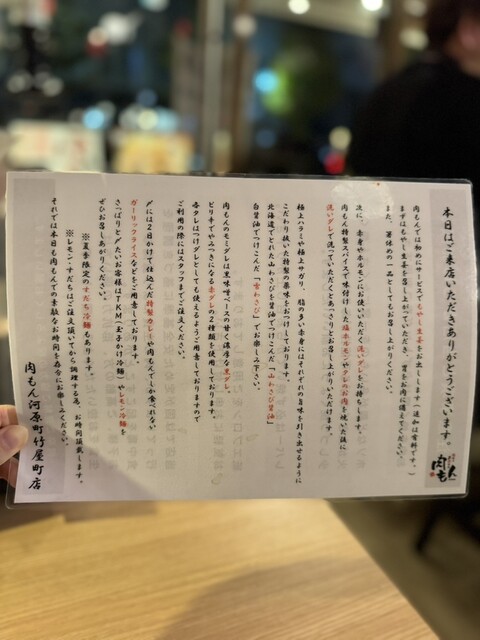 本日はご来店いただきありがとうございます。
肉もん
肉もんでは初めにサービスでもやし生姜をお出しします(追加は有料です。)
まずはもやし生姜を召し上がっていただき、胃をお肉に備えてください。
また、箸休めの一品としてもお召し上がりください。
次に、赤身やホルモンにお使いいただく洗いダレをお持ちします。
肉もん特製スパイスで味付けした塩ホルモンやタレのお肉を焼いた後に
洗いダレで洗っていただくとあっさりとお召し上がりいただけます
極上ハラミや極上サガリ、脂の多い赤身にはそれぞれの旨味を引き出せるように
こだわり抜いた特製の薬味をおつけしております。
北海道でとれた山わさびを醤油でつけこんだ「山わさび醤油」
白醤油でつけこんだ「雪わさび」でお楽しみ下さい。
肉もんのモミダレは黒味噌ベースの甘く濃厚な黒ダレ、
ピリ辛でやみつきになる赤ダレの2種類を使用しております。
各タレはつけダレとしても使えるようご用意しておりますので
ご利用の際にはスタッフまでご注文ください。
〆には2日かけて仕込んだ特製カレーや肉もんでしか食べれない
ガーリックライスなどをご用意しております。
さっぱりと〆たいお客様はTKM(玉子かけ冷麺)やレモン冷麺を
ぜひお召しあがりください。
※夏季限定のすだち冷麺もあります。
※レモン・すだちはご注文頂いてから調理する為、お時間頂戴します。
それでは本日も肉もんでの素敵なお時間を存分にお楽しみください。
肉もん河原町竹屋町店